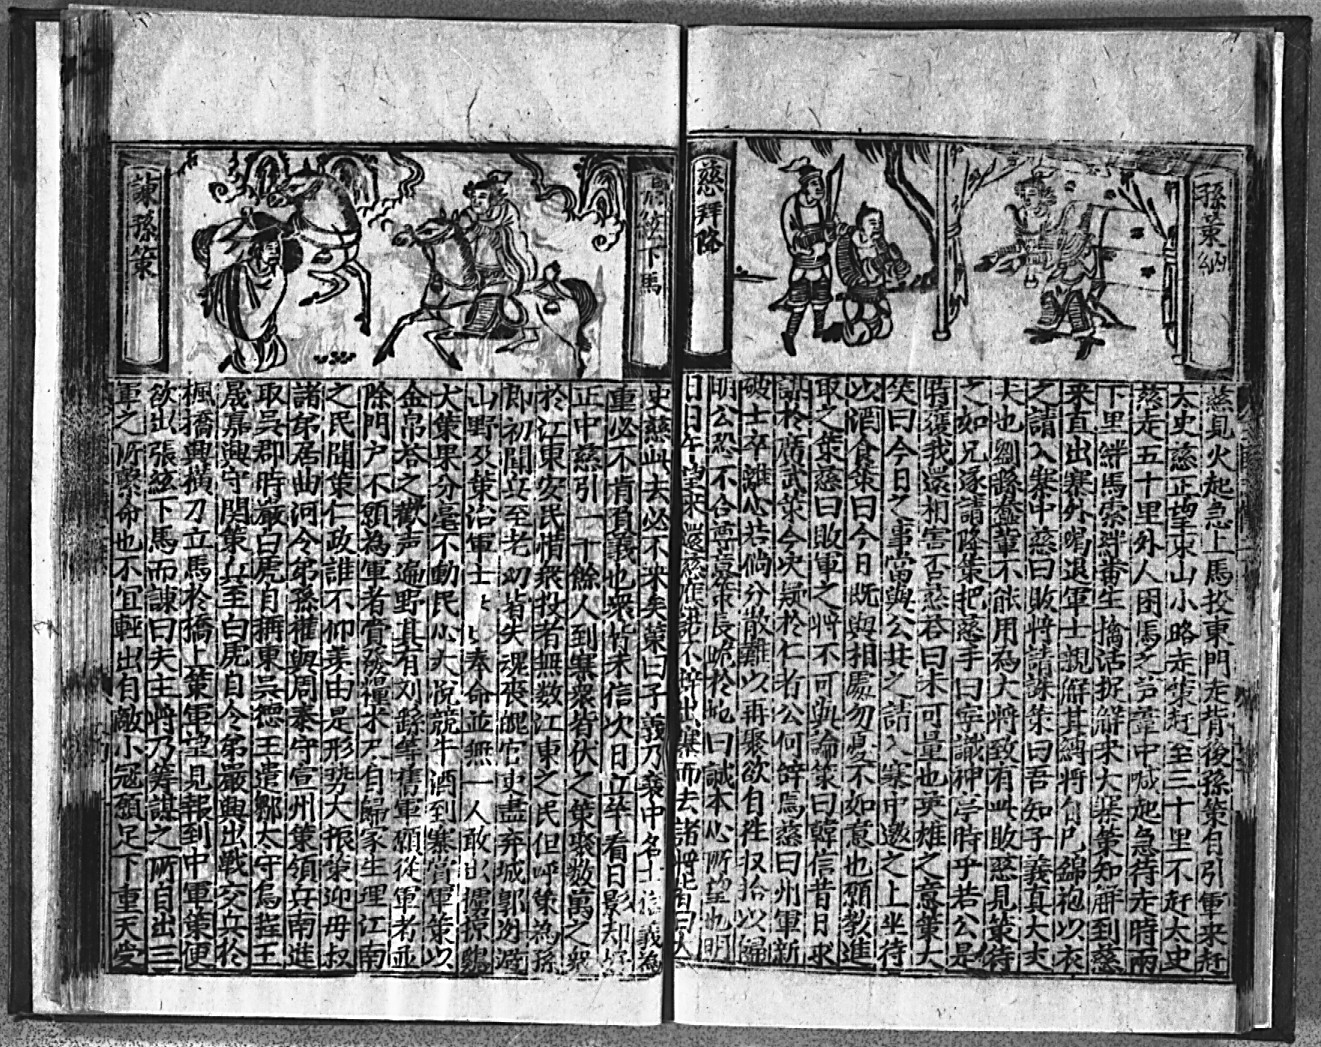 孫策納
慈拜降
慈見火起急上馬投東門走背後孫策自引軍來赶
太史慈正望東山小路走策赶至三十里不赶太史
慈走五十里外人困馬乏芦葦中喊起急待走時兩
下里絆馬索絆番生擒活捉解來大寨策知解到慈
來直出寨外喝退軍士親解其縛將自己錦袍以衣
之請入寨中慈曰敗將請誅策曰吾知子義真大丈
夫也劉繇蠢輩不能用為大將致有此敗慈見策待
之如兄遂請降策把慈手曰寧識神亭時乎若公是
時獲我還相害否慈答曰未可量也英雄之意策大
笑曰今日之事當與公共之請入寨中邀之上坐待
以酒食策曰今日既與相處勿憂不如意也願教進
取之策慈曰敗軍之將不可與論策曰韓信昔日求
謀於廣武策今決疑於仁者公何辞焉慈曰州軍新
破士卒離心若倘分散難以再聚欲自往收拾以歸
明公恐不合尊意策長跪於地曰誠本心所望也明
日日午望來還慈應諾不辞出寨而去諸將皆曰太
張紘下馬
諫孫策
史慈此去必不來矣策曰子義乃襄中名士信義為
重必不肯負義也衆皆未信次日立竿看日影却好
正中慈引一千餘人到寨衆皆伏之策聚数萬之衆
於江東安民惜衆投者無数江東之民但呼策為孫
郎初聞兵至老幼皆失魂喪魄官吏盡弃城郭竄避
山野及策治軍士士奉命並無一人敢出擄掠鷄
犬策果分毫不動民心大悅競牛酒到寨賞軍策以
金帛答之歡声遍野其有刘繇等舊軍願從軍者並
除門户不願為軍者賞發粮米尺自歸家生理江南
之民聞策仁政誰不仰羡由是形势大振策迎母叔
諸弟居曲河令弟孫權與周泰守宣州策領兵南進
取吳郡時嚴白虎自稱東吳德王遣鄒太守烏程王
晟嘉興守関策兵至白虎自令弟嚴興出戰交兵於
楓橋興橫刀立馬於橋上策軍望見報到中軍策便
欲出張紘下馬而諫曰夫主將乃筹謀之所自出三
軍之所繫命也不宜輕出自敵小冦願足下重天受